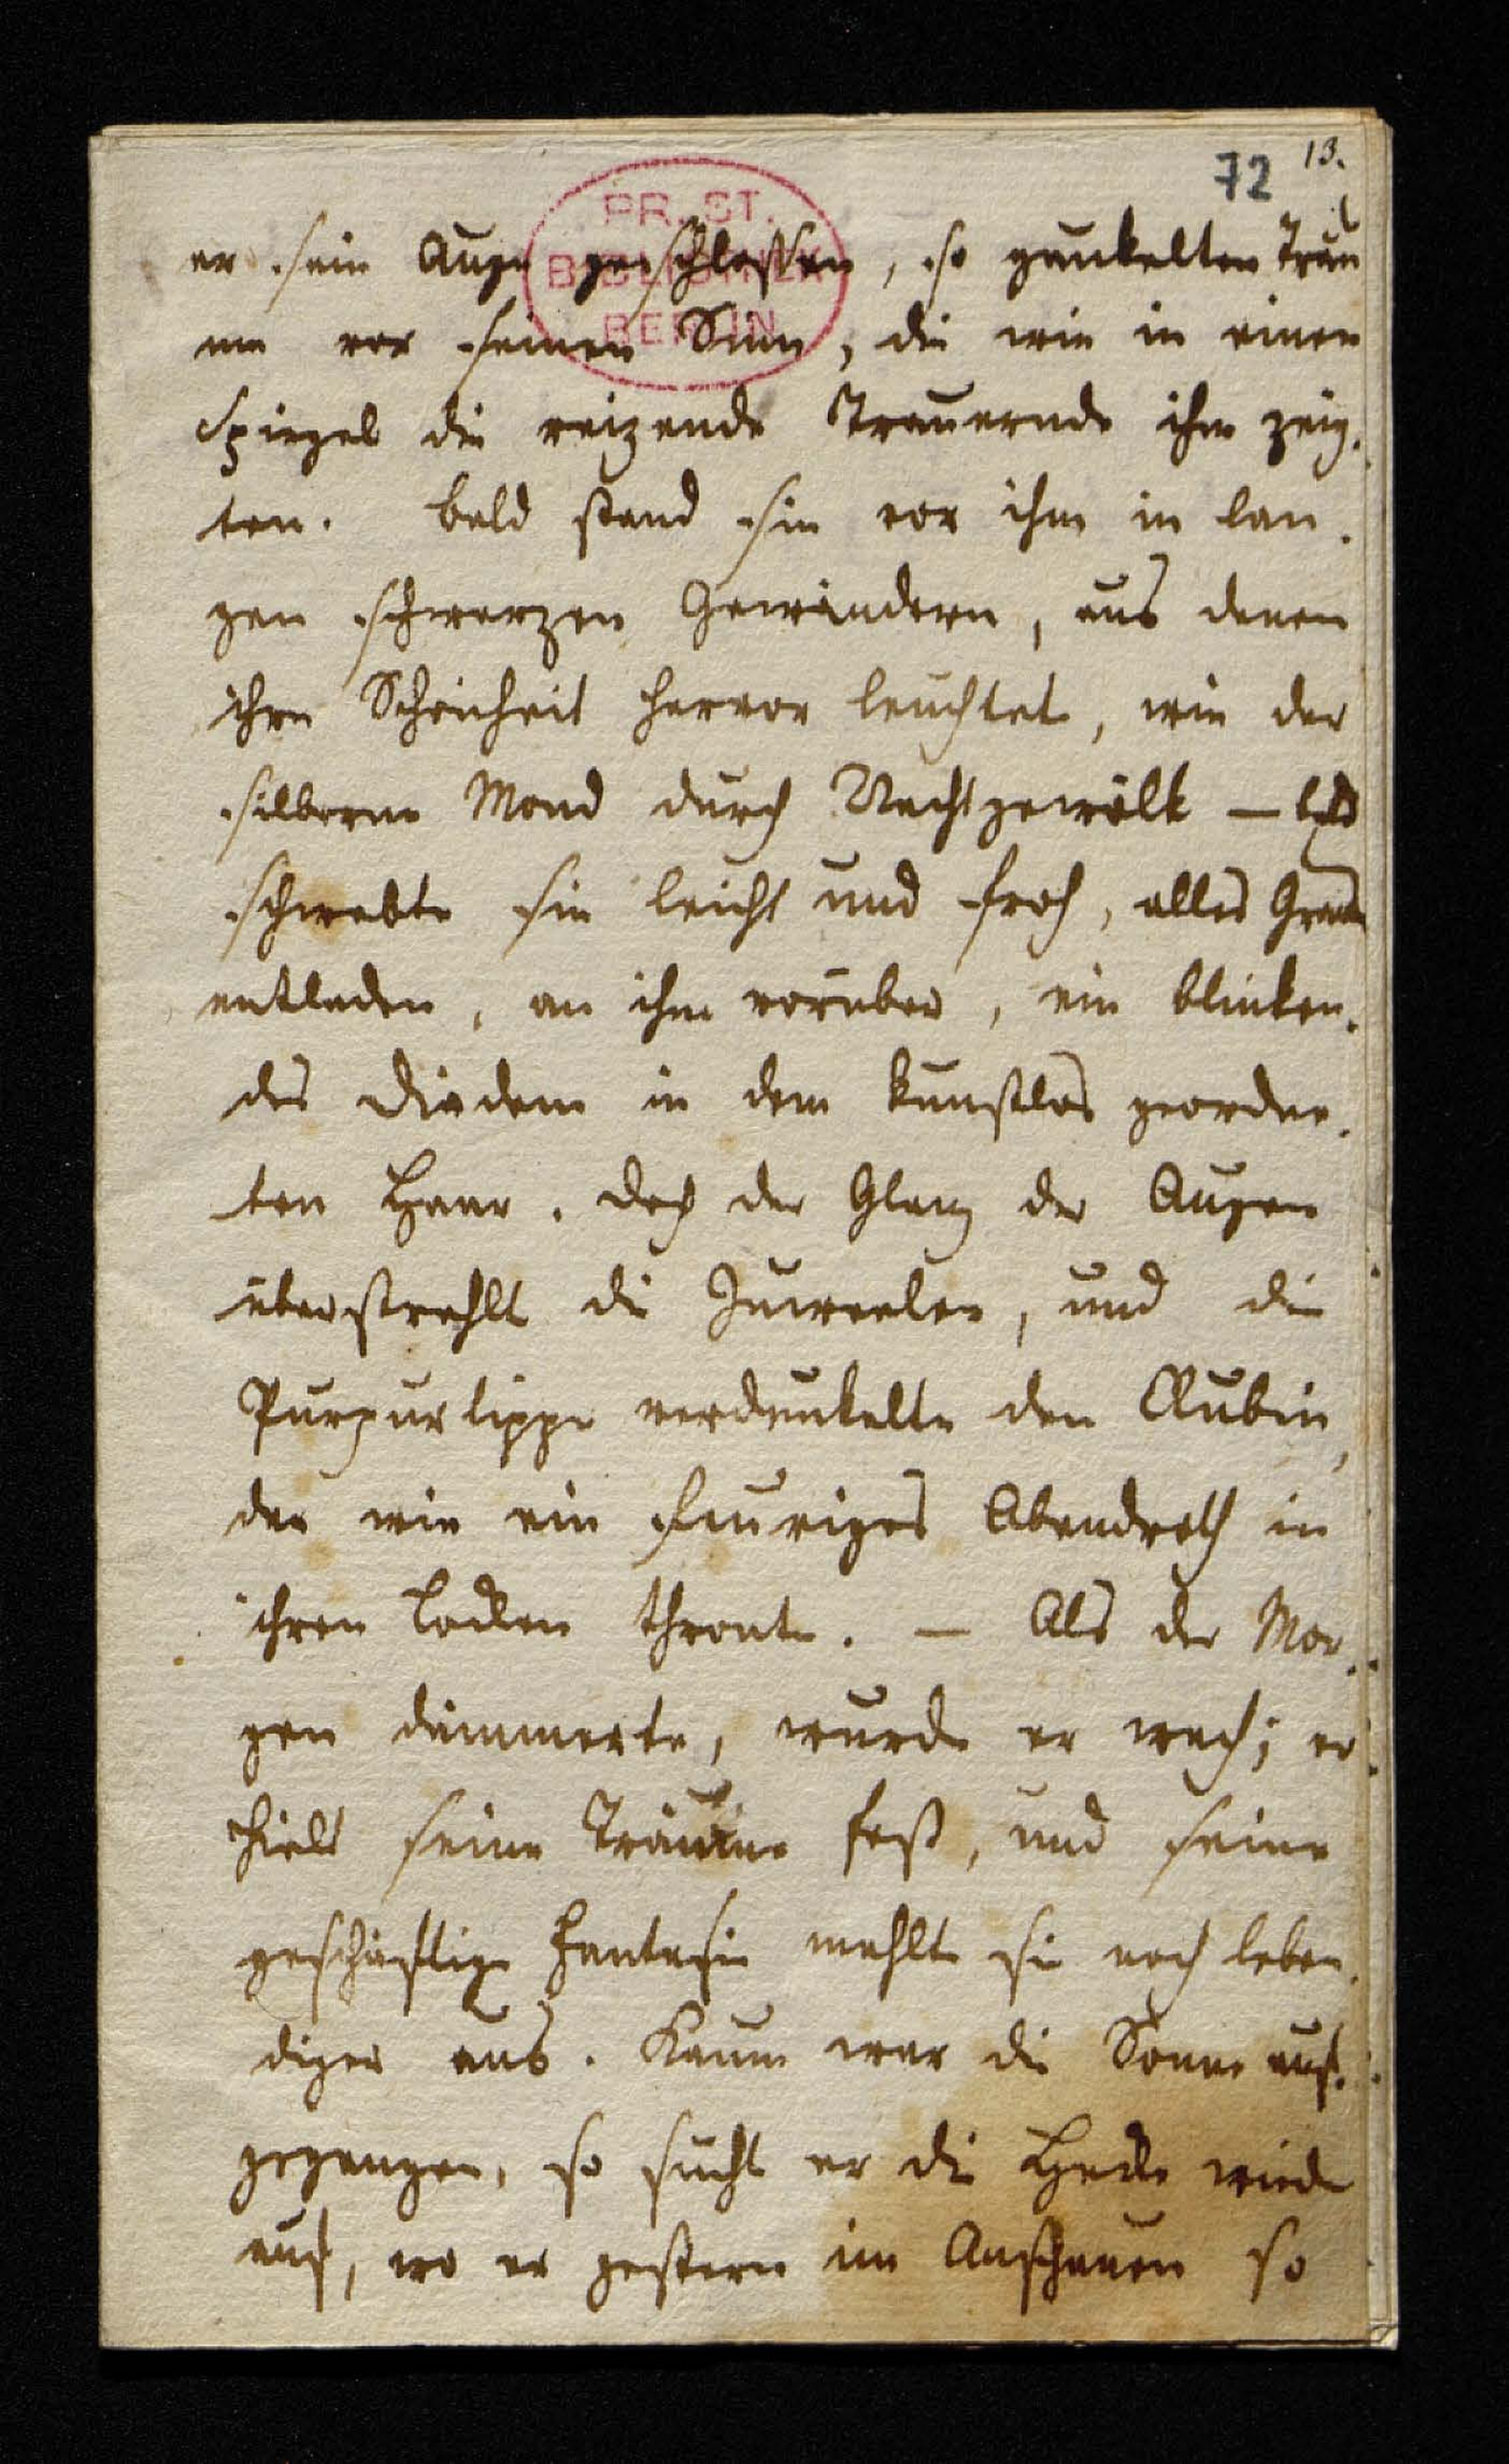 72 13.
PR. ST.
BIBLIOTHEK
BERLIN
er sein Auge geschlossen, so gaukelten Träu
me vor seinen Sinn, die wie in einen
Spiegel die reizende Trauernde ihm zeig-
ten. bald stand sie vor ihm in lan-
gen schwarzen Gewändern, aus denen
ihre Schönheit hervor leuchtet, wie der
silberne Mond durch Nachtgewölk – bald
schwebte sie leicht und froh, alles Gram
entladen, an ihm vorüber, ein blinken-
des Diadem in dem kunstlos geordne-
ten Haar. doch der Glanz der Augen
überstrahlt die Juweelen, und die
Purpurlippe verdunkelte den Rubin,
der wie ein feuriges Abendroth in
ihren Locken thronte. – Als der Mor-
gen dämmerte, wurde er wach; er
hielt seine Träume fest, und seine
geschäftige Fantasie mahlte sie noch leben-
diger aus. Kaum war die Sonne auf-
gegangen, so sucht er die Hecke wieder
auf, wo er gestern im Anschauen so